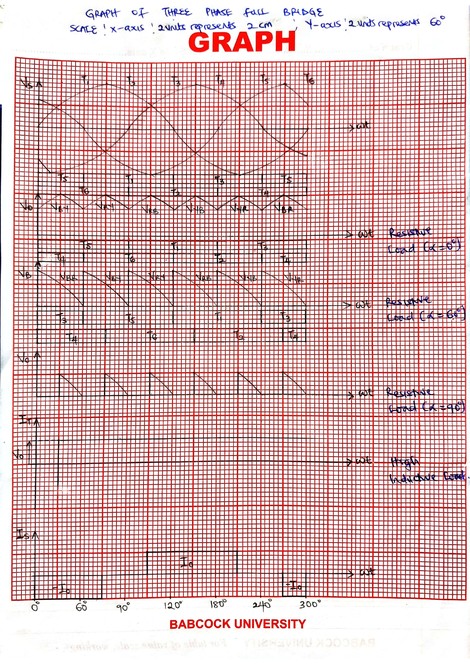 GRAPH OF THREE PHASE FULL BRIDGE
SCALE: x-axis: 2 units represents 2cm ; Y-axis: 2 units represents 60°
GRAPH
Vs T1 T2 T3 T4 T5 T6
ωt
T5 T1 T3 T5
T6 T2 T4
Vo
ωt Resistive
Load (α=0°)
T5 T1 T3
T4 T6 T2 T4
ωt Resistive
Load (α=60°)
T3 T5 T1 T3
T4 T6 T2 T4
Vo
ωt Resistive
Load (α=90°)
Vo
ωt High
Inductive Load.
Is
Io
ωt
-Io -Io
0° 60° 90° 120° 180° 240° 300°
BABCOCK UNIVERSITY